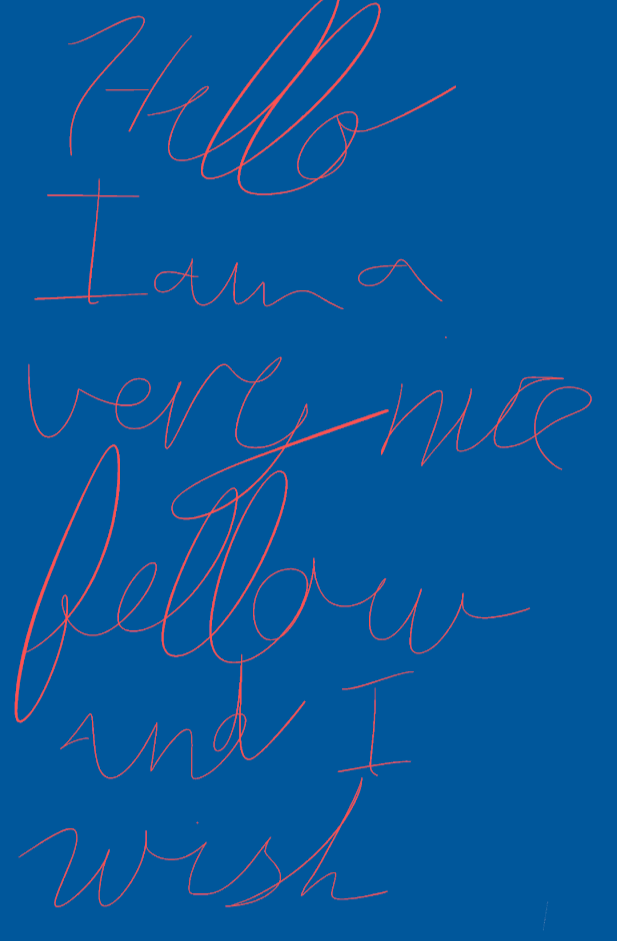 Hello
I am a
very nice
fellow
and I
wish